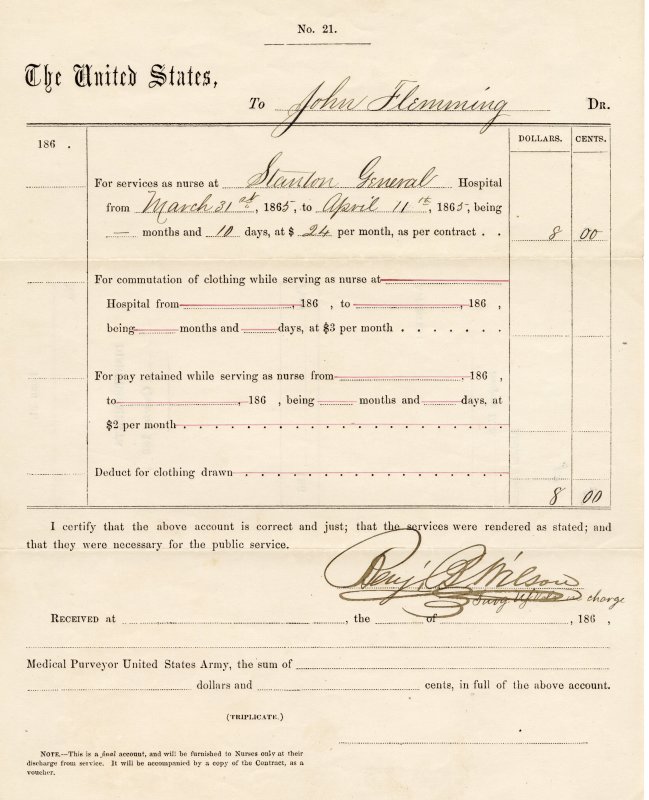 No. 21.
The United States,
To John Flemming DR.
186 . DOLLARS. CENTS.
For services as nurse at Stanton General Hospital
from March 31st, 1865, to April 11th, 1865, being
— months and 10 days, at $ 24 per month, as per contract . . 8 00
For commutation of clothing while serving as nurse at
Hospital from , 186 , to , 186 ,
being months and days, at $3 per month . . . . . . .
For pay retained while serving as nurse from , 186 ,
to , 186 , being months and days, at
$2 per month . . . . . . . . . . . . . . . . . . . .
Deduct for clothing drawn . . . . . . . . . . . . . . . .
8 00
I certify that the above account is correct and just; that the services were rendered as stated; and
that they were necessary for the public service.
Benj. B. Wilson
Surg in charge
RECEIVED at , the of , 186 ,
Medical Purveyor United States Army, the sum of
dollars and cents, in full of the above account.
(TRIPLICATE.)
NOTE.—This is a final account, and will be furnished to Nurses only at their
discharge from service. It will be accompanied by a copy of the Contract, as a
voucher.